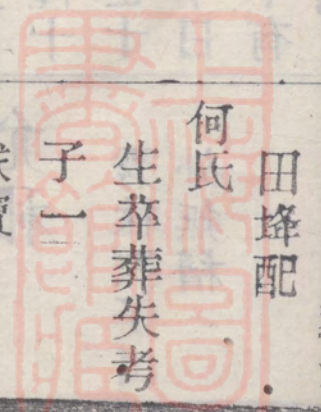 田埄配
何氏
生卒葬失考
子一